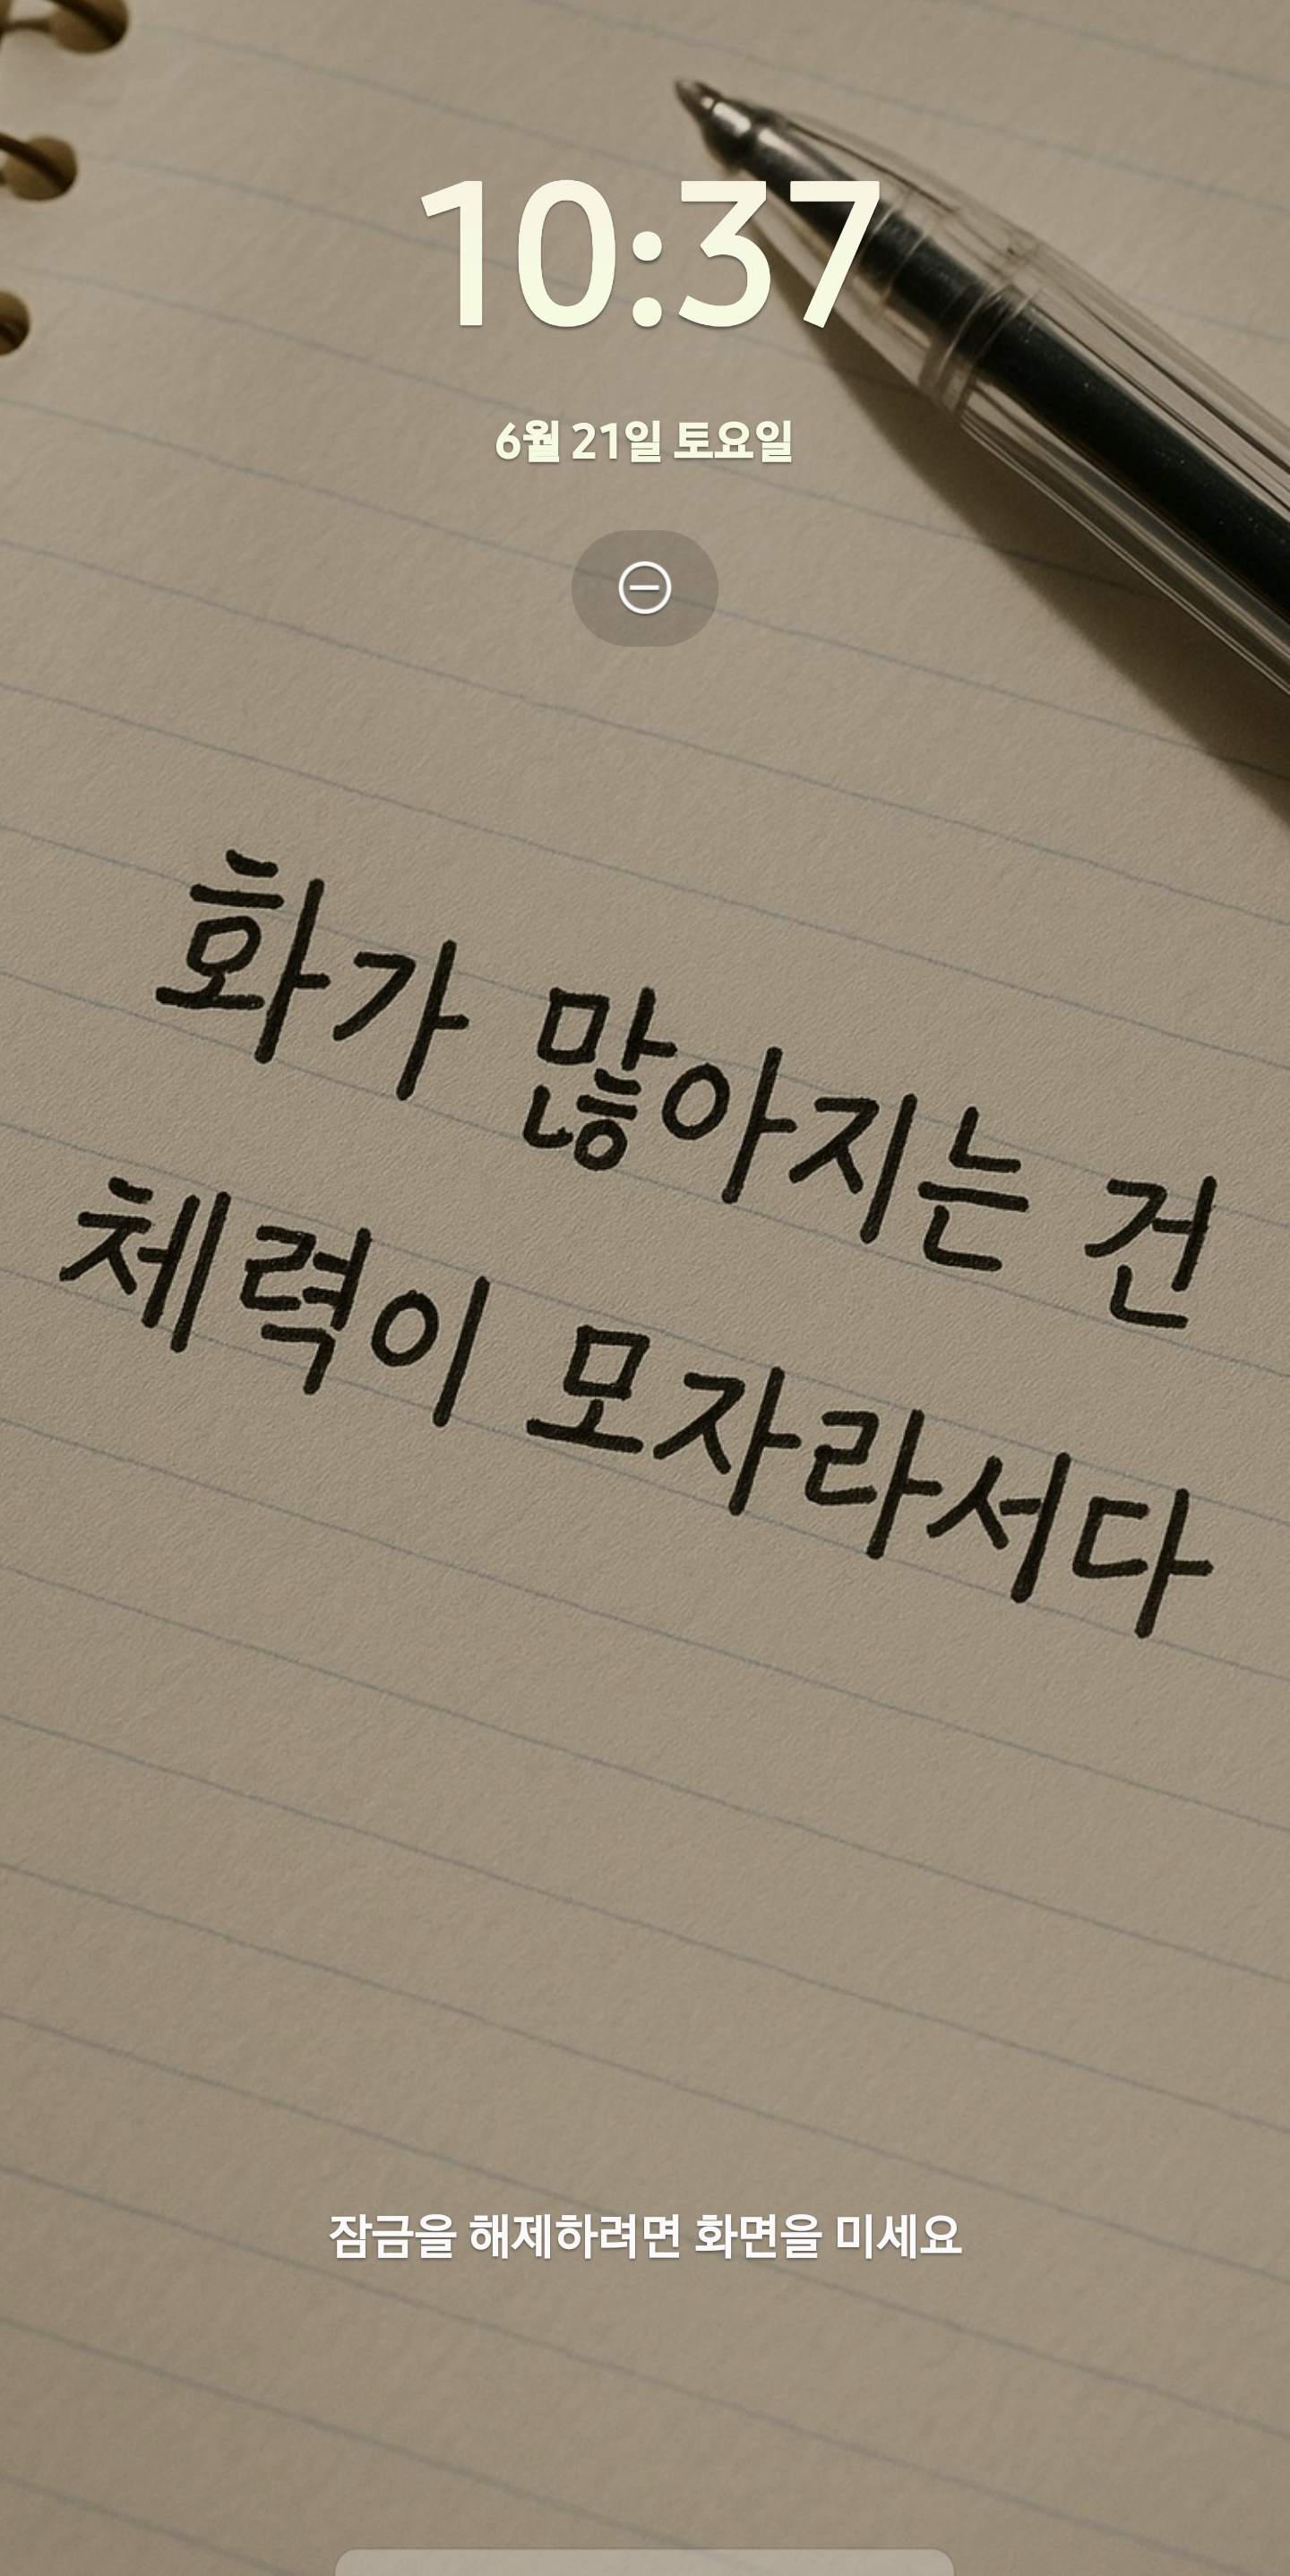 10:37
6월 21일 토요일
화가 많아지는 건
체력이 모자라서다
잠금을 해제하려면 화면을 미세요